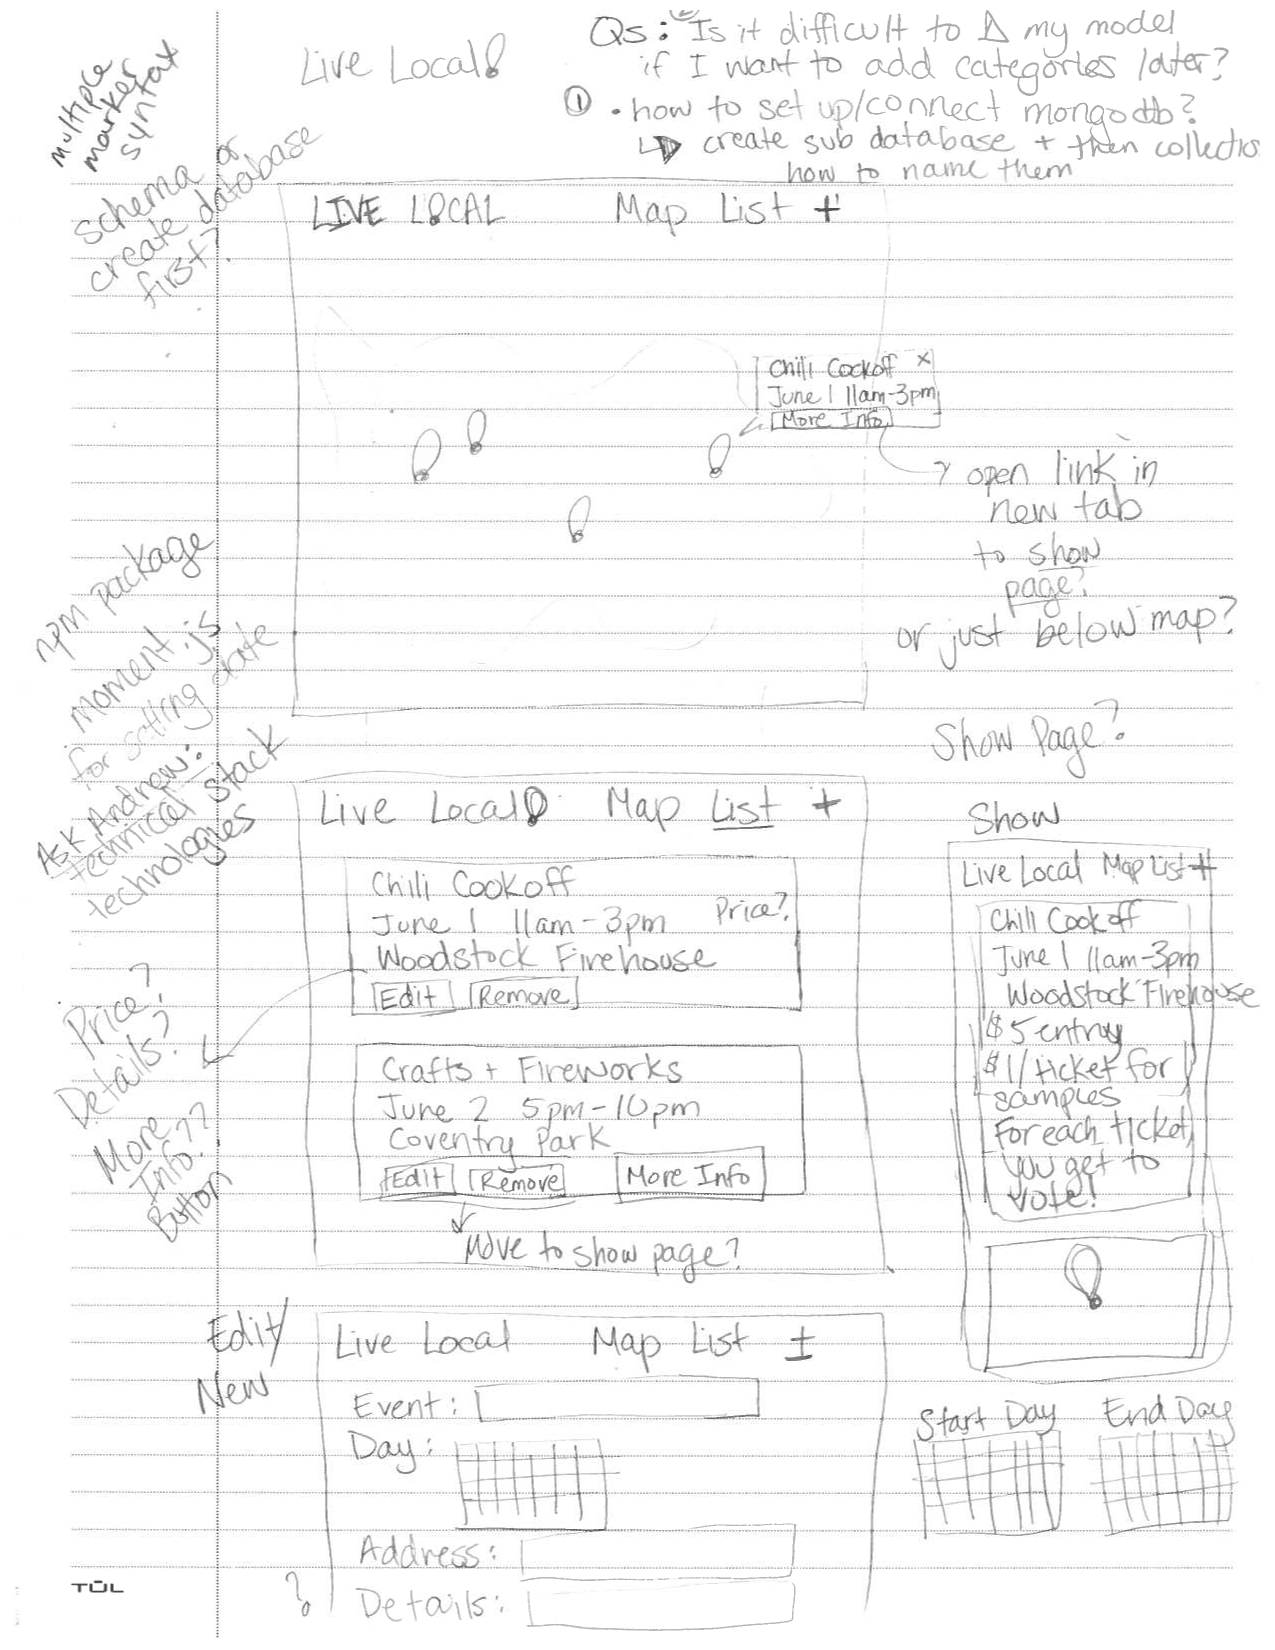 Live Local
Qs: Is it difficult to Δ my model
if I want to add categories later?
① • how to set up/connect mongodb?
↳ create sub database + then collectios
how to name them
multiple
marker
syntax
schema or
create database
first?
LIVE LOCAL Map List +
Chili Cookoff x
June 1 11am-3pm
More Info
open link in
new tab
to show
page?
or just below map?
npm package
Moment.js
for setting date
Ask Andrew:
technical stack
technologies
Show Page?
Live Local Map List +
Chili Cookoff
June 1 11am-3pm Price?
Woodstock Firehouse
Edit Remove
Price?
Details?
More
Info??
Button
Crafts + Fireworks
June 2 5pm-10pm
Coventry Park
Edit Remove More Info
Move to show page?
Show
Live Local Map List +
Chili Cookoff
June 1 11am-3pm
Woodstock Firehouse
$5 entry
$1/ticket for
samples
For each ticket,
you get to
vote!
Edit/
New
Live Local Map List +
Event:
Day:
Start Day End Day
Address:
? Details:
TUL